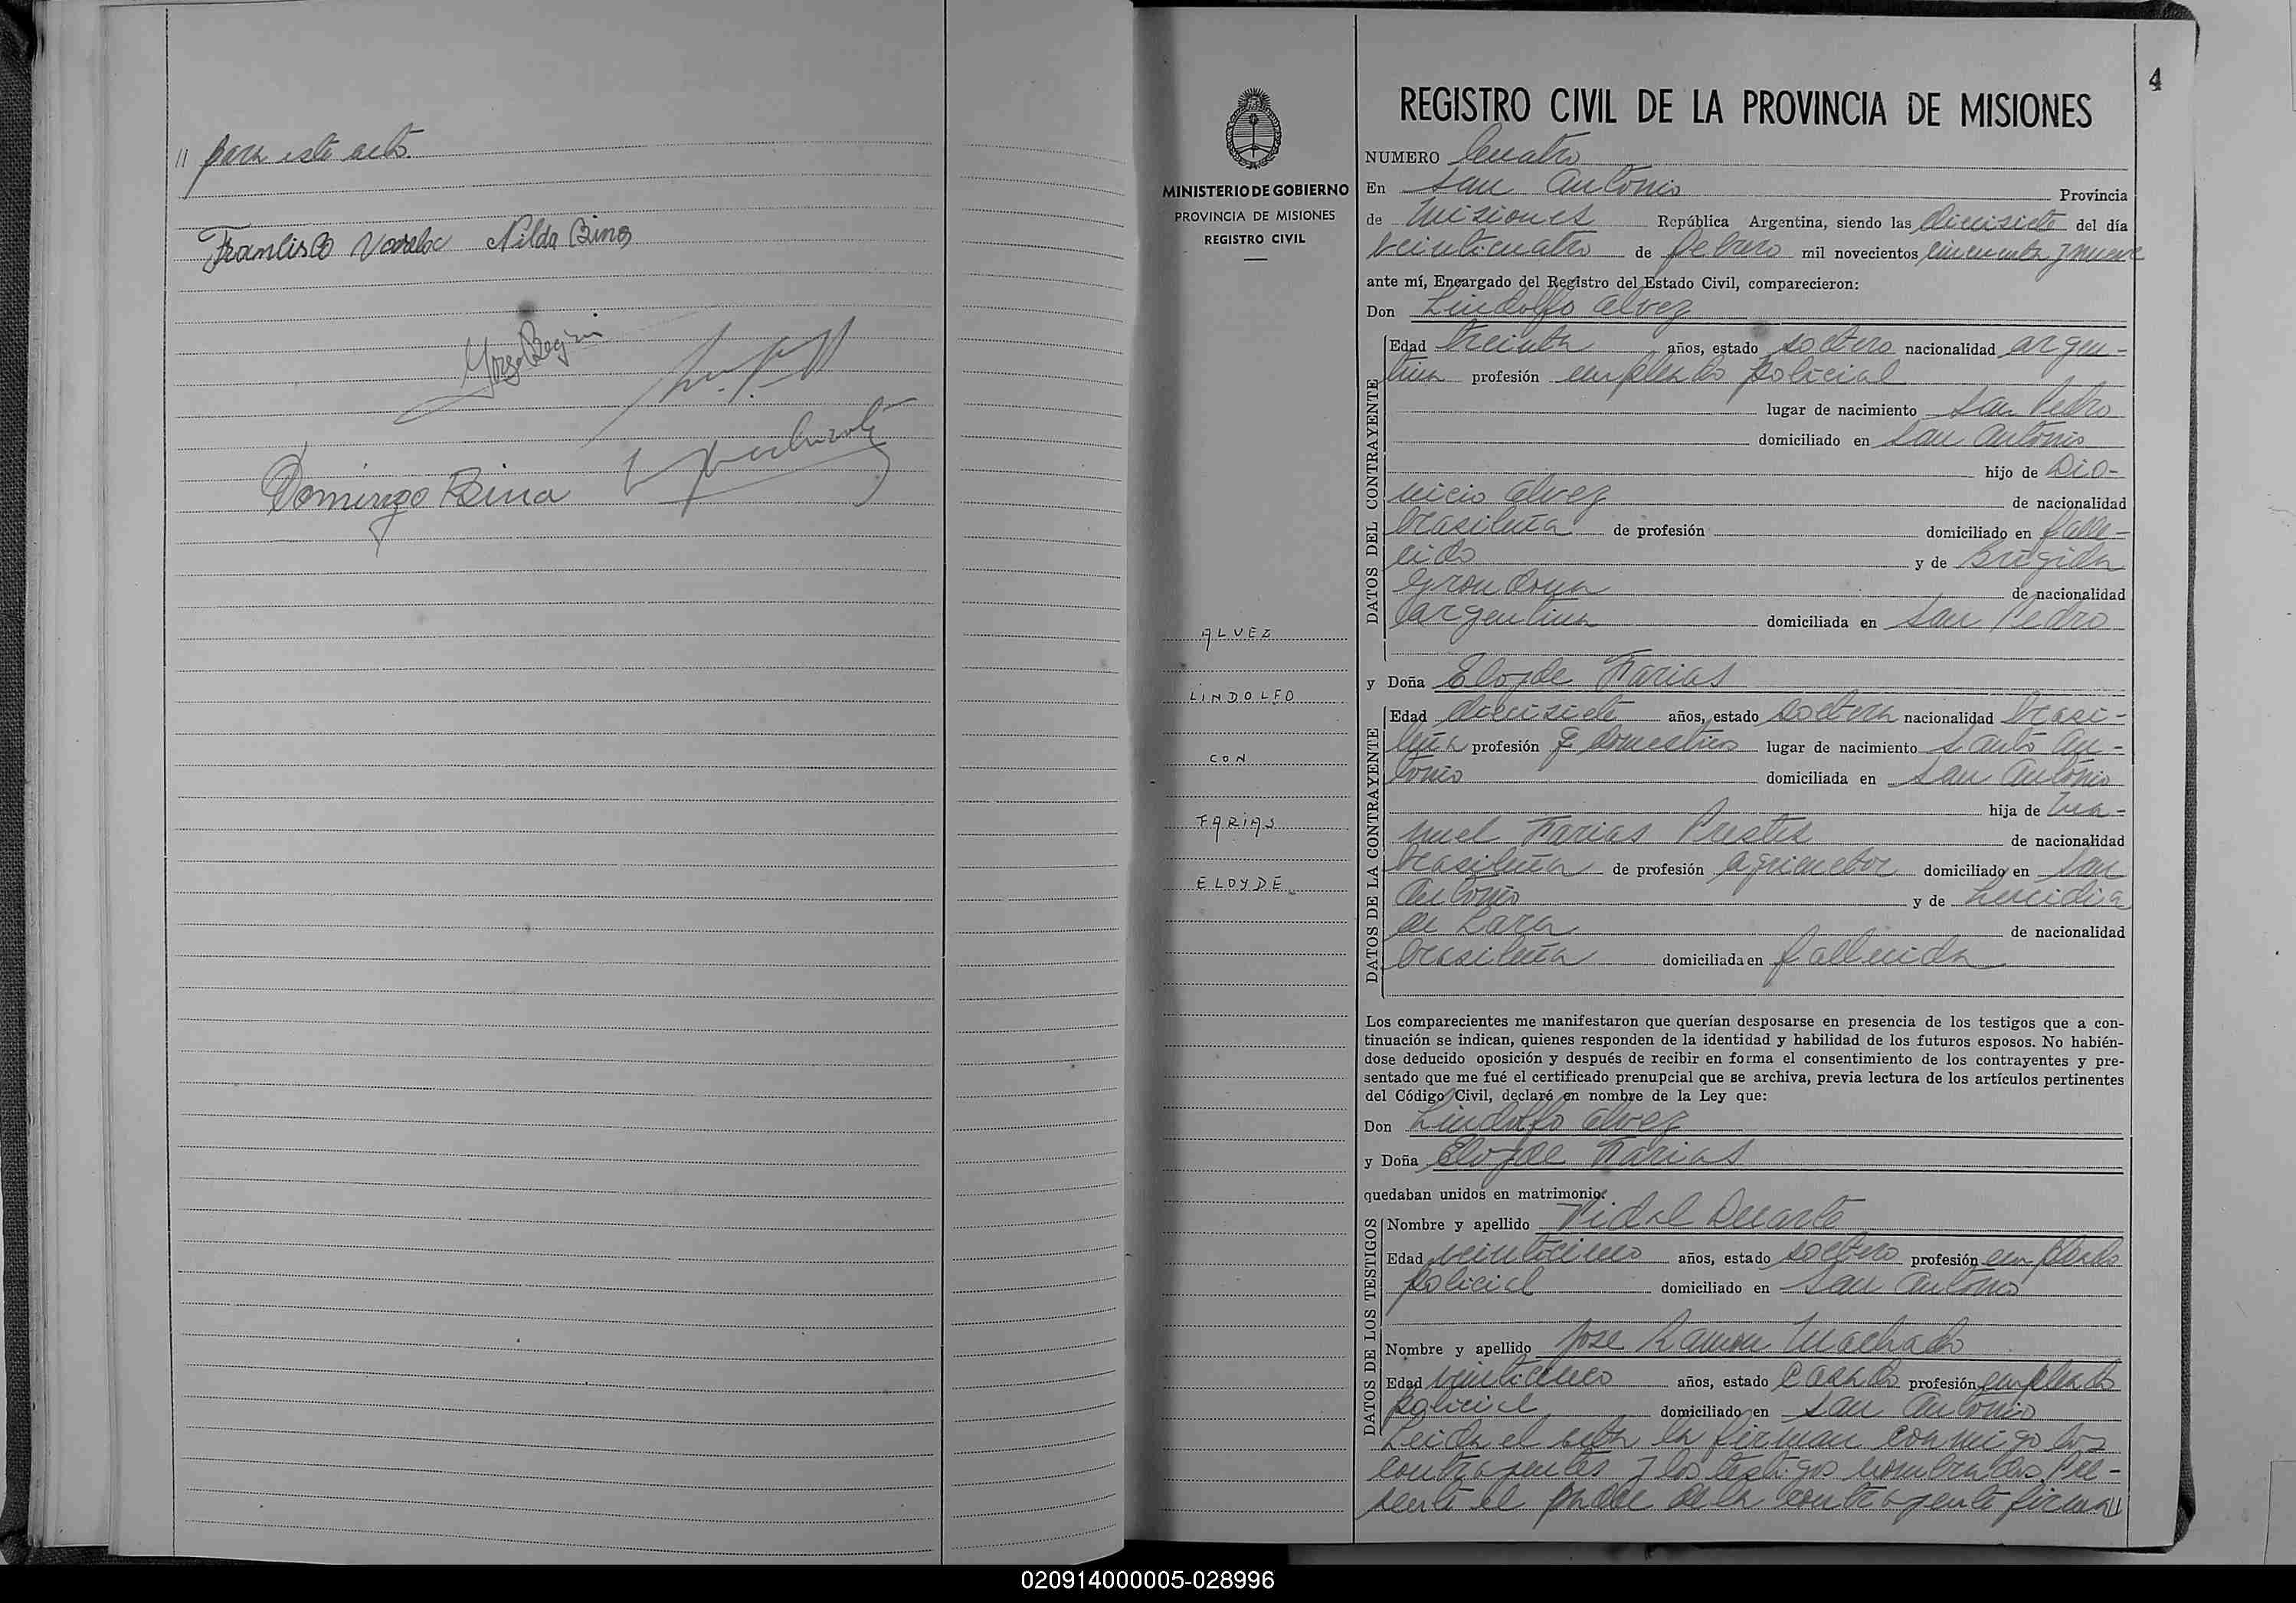 // para este acto.
Francisco Nilda Bino
Domingo Bina
4
MINISTERIO DE GOBIERNO
PROVINCIA DE MISIONES
REGISTRO CIVIL
ALVEZ
LINDOLFO
CON
FARIAS
ELOYDE
REGISTRO CIVIL DE LA PROVINCIA DE MISIONES
NUMERO Cuatro
En San Antonio Provincia
de Misiones República Argentina, siendo las diecisiete del día
veinticuatro de febrero mil novecientos cincuenta y nueve
ante mí, Encargado del Registro del Estado Civil, comparecieron:
Don Lindolfo Alvez
DATOS DEL CONTRAYENTE
Edad treinta años, estado soltero nacionalidad argen-
tina profesión empleado policial
lugar de nacimiento San Pedro
domiciliado en San Antonio
hijo de Dio-
nicio Alvez de nacionalidad
brasileña de profesión domiciliado en falle-
cido y de Brigida
Grondona de nacionalidad
argentina domiciliada en San Pedro
y Doña Eloyde Farias
DATOS DE LA CONTRAYENTE
Edad diecisiete años, estado soltera nacionalidad brasi-
leña profesión q. domesticos lugar de nacimiento Santo An-
tonio domiciliada en San Antonio
hija de Ma-
nuel Farias Prestes de nacionalidad
brasileña de profesión agricultor domiciliado en San
Antonio y de
de Lara de nacionalidad
brasileña domiciliada en fallecida
Los comparecientes me manifestaron que querían desposarse en presencia de los testigos que a con-
tinuación se indican, quienes responden de la identidad y habilidad de los futuros esposos. No habién-
dose deducido oposición y después de recibir en forma el consentimiento de los contrayentes y pre-
sentado que me fué el certificado prenupcial que se archiva, previa lectura de los artículos pertinentes
del Código Civil, declaré en nombre de la Ley que:
Don Lindolfo Alvez
y Doña Eloyde Farias
quedaban unidos en matrimonio.
DATOS DE LOS TESTIGOS
Nombre y apellido Vidal Duarte
Edad veinticinco años, estado soltero profesión empleado
policial domiciliado en San Antonio
Nombre y apellido Jose Ramon Machado
Edad veinticinco años, estado casado profesión empleado
policial domiciliado en San Antonio
Leida el acta la firman conmigo los
contrayentes y los testigos nombrados. Pre-
sente el padre de la contrayente firma //
020914000005-028996